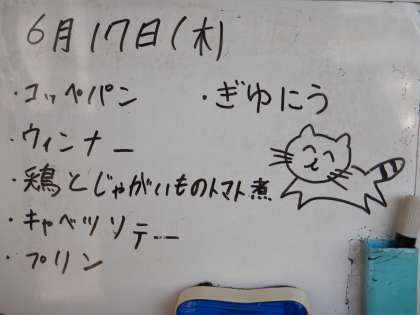 6月17日(木)
・コッペパン ・ぎゆにう
・ウィンナー
・鶏とじゃがいものトマト煮
・キャベツソテー
・プリン